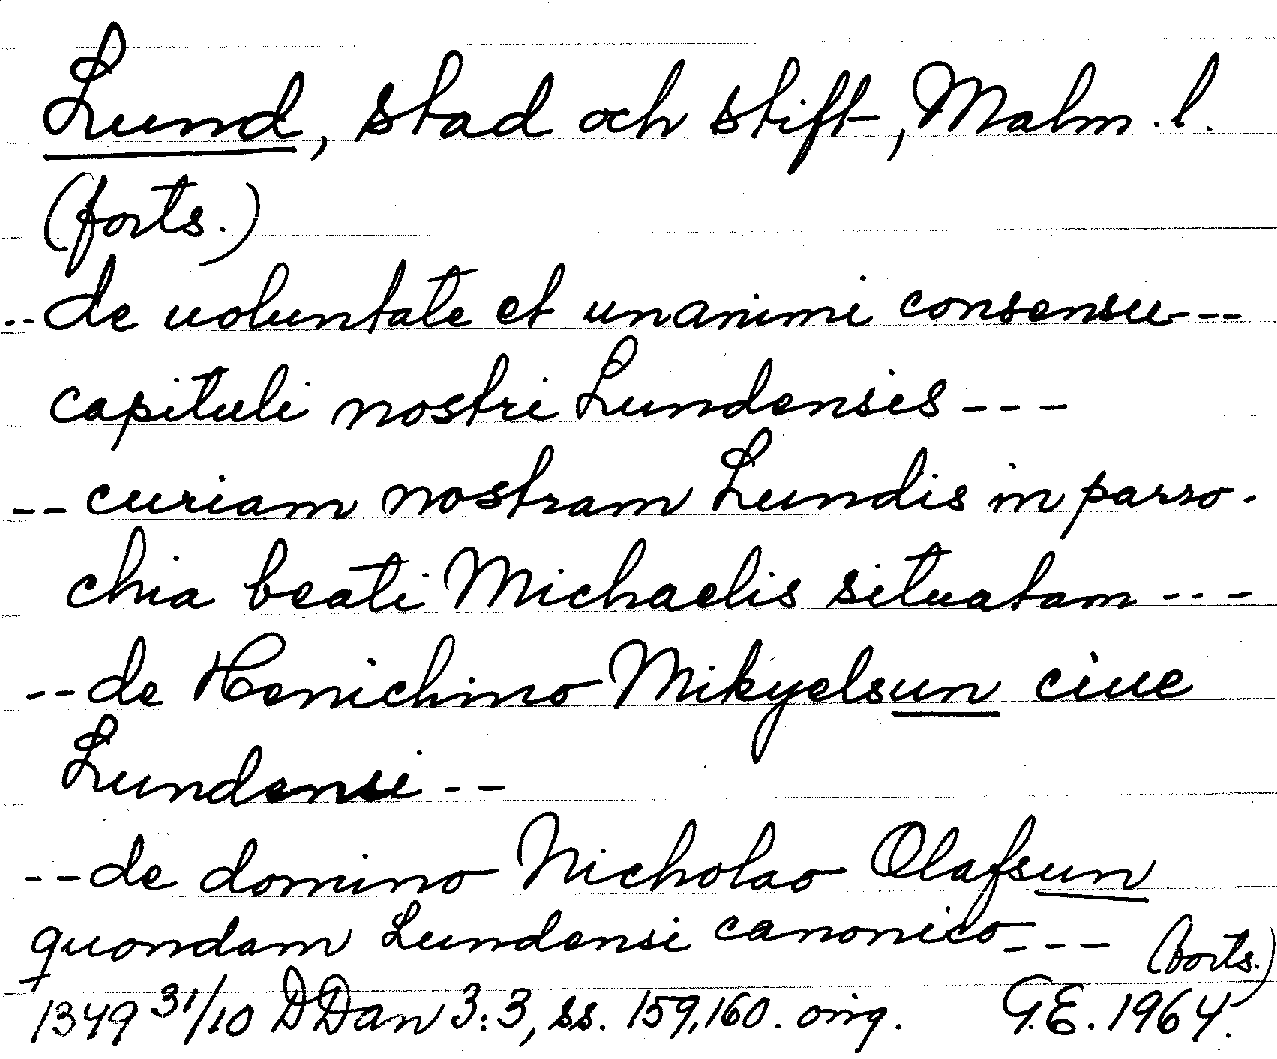 Lund, stad och stift, Malm. l.
(forts.)
--de uoluntate et unanimi consensu---
capituli nostri Lundensis---
--curiam nostram Lundis in parro-
chia beati Michaelis situatam---
--de Henichino Mikyelsun ciue
Lundensi--
--de domino Nicholao Olafsun
quondam Lundensi canonico---
(forts.)
1349 31/10 DDan 3:3, ss. 159,160. orig. G.E. 1964.